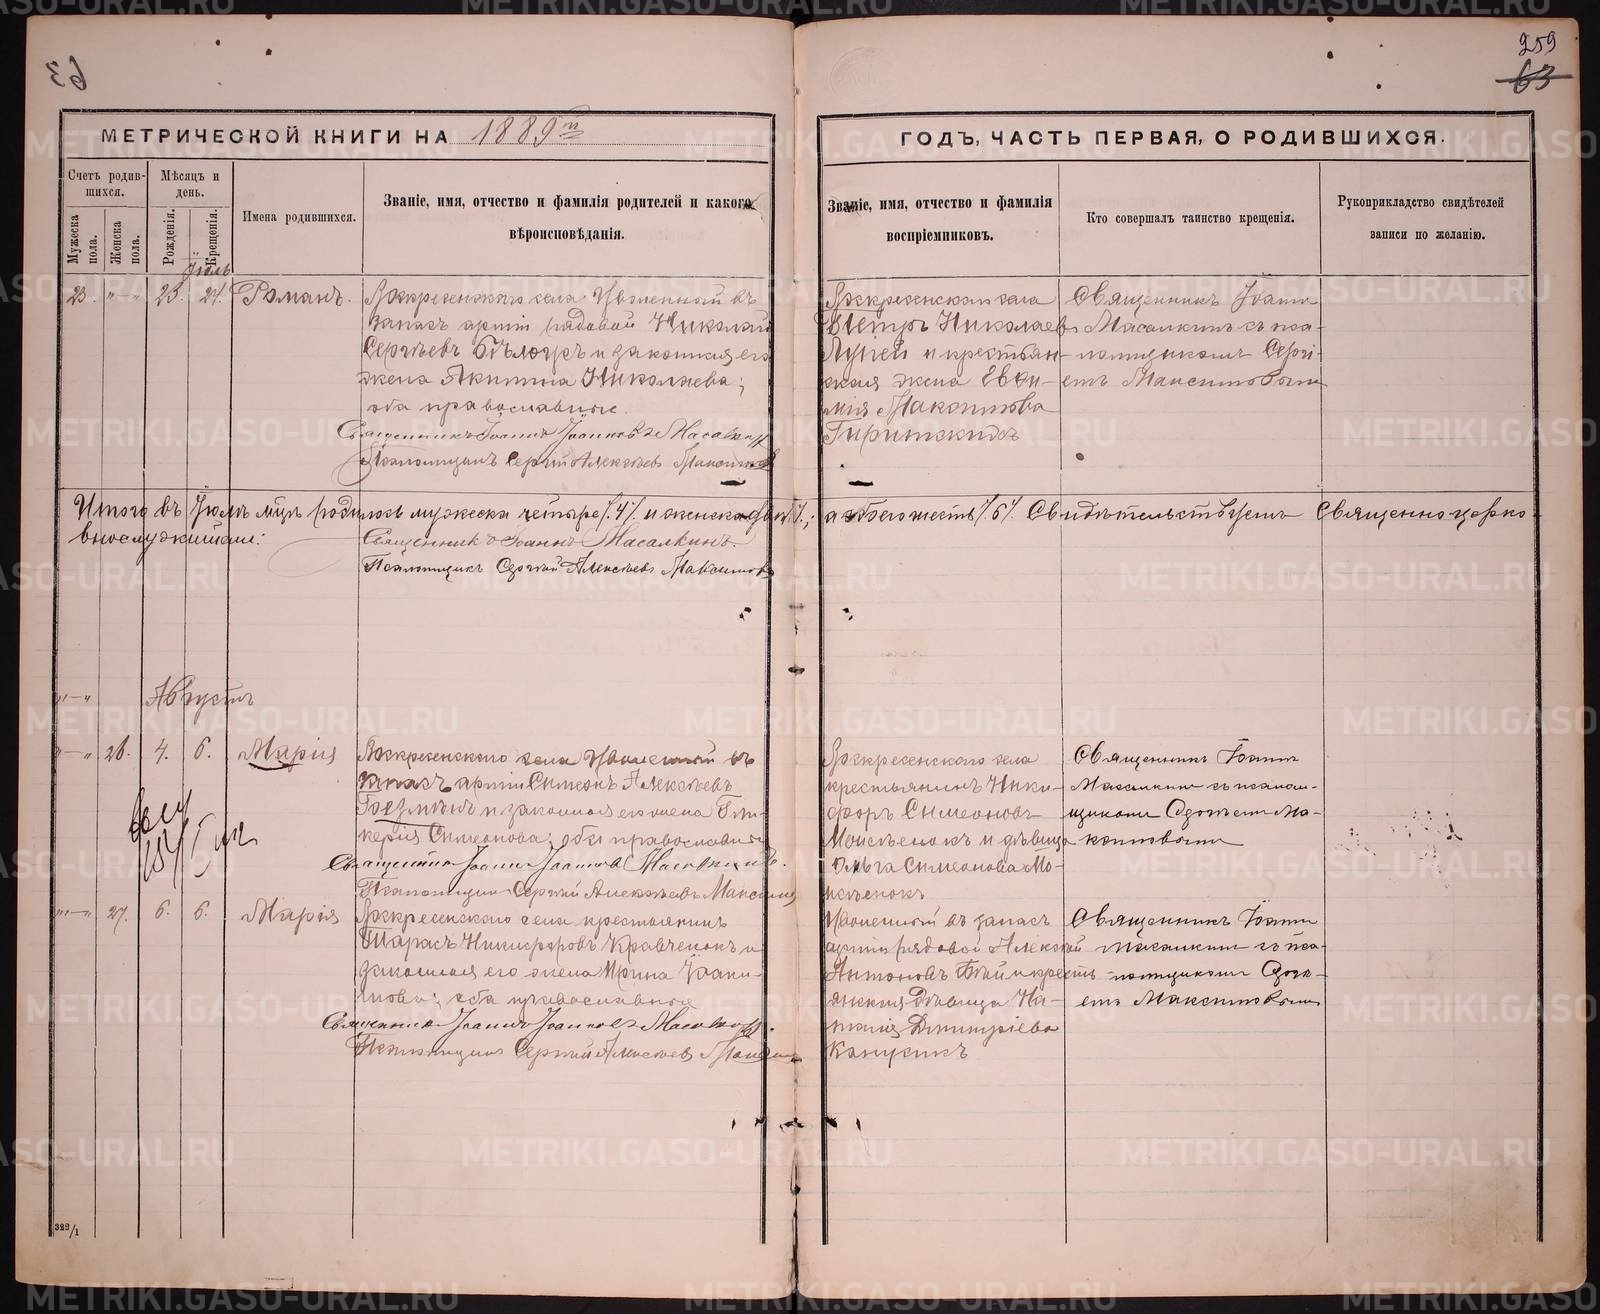 259
63
63
МЕТРИЧЕСКОЙ КНИГИ НА 1889й
ГОДЪ, ЧАСТЬ ПЕРВАЯ, О РОДИВШИХСЯ.
Счетъ родив-
шихся.
Мѣсяцъ и
день.
Мужеска
пола.
Женска
пола.
Рожденія.
Крещенія.
Имена родившихся.
Званіе, имя, отчество и фамилія родителей и какого
вѣроисповѣданія.
Званіе, имя, отчество и фамилія
воспріемниковъ.
Кто совершалъ таинство крещенія.
Рукоприкладство свидѣтелей
записи по желанію.
Іюль
23. „—„ 23. 24. Романъ.
Воскресенскаго села Уволенный въ
запасъ арміи рядовой Николай
Сергѣевъ и законная его
жена Николаева;
оба православные.
Священникъ Іоаннъ Іоанновъ Масалкинъ
Псаломщикъ Сергій Алексѣевъ Максимовъ
Воскресенскаго села
Петръ Николаевъ
и крестьян-
ская жена Евѳи-
мія
Священникъ Іоаннъ
Масалкинъ съ пса-
ломщикомъ Сергі-
емъ Максимовымъ
Итого въ Іюлѣ мцѣ родилось мужеска четыре /.4/. и женска два /./.; а обоего шесть /.6/. Свидѣтельствуемъ Священно-церко-
внослужители:
Священникъ Іоаннъ Масалкинъ.
Псаломщикъ Сергій Алексѣевъ Максимовъ
„—„ Августъ
„—„ 26. 4. 6. Марія
Воскресенскаго села Уволенный въ
запасъ арміи Симеонъ Алексѣевъ
и законная его жена Гли-
керія Симеонова; оба православные
Священникъ Іоаннъ Іоанновъ Масалкинъ.
Псаломщикъ Сергій Алексѣевъ Максимовъ
Воскресенскаго села
крестьянинъ Ники-
форъ Симеоновъ
Моисѣенокъ и дѣвица
Ольга Симеонова Мо-
исѣенокъ
Священникъ Іоаннъ
Масалкинъ съ псалом-
щикомъ Сергѣемъ Ма-
ксимовымъ
„—„ 27. 6. 6. Марія
Воскресенскаго села крестьянинъ
Тарасъ Никифоровъ Кравченокъ и
законная его жена Ирина Іоаки-
мова; оба православные
Священникъ Іоаннъ Іоанновъ Масалкинъ.
Псаломщикъ Сергій Алексѣевъ Максимовъ
Уволенный въ запасъ
арміи рядовой Алексѣй
Антоновъ и кресть-
янская дѣвица На-
талія Димитріева
Священникъ Іоаннъ
Масалкинъ съ пса-
ломщикомъ Серги-
емъ Максимовымъ
322/1